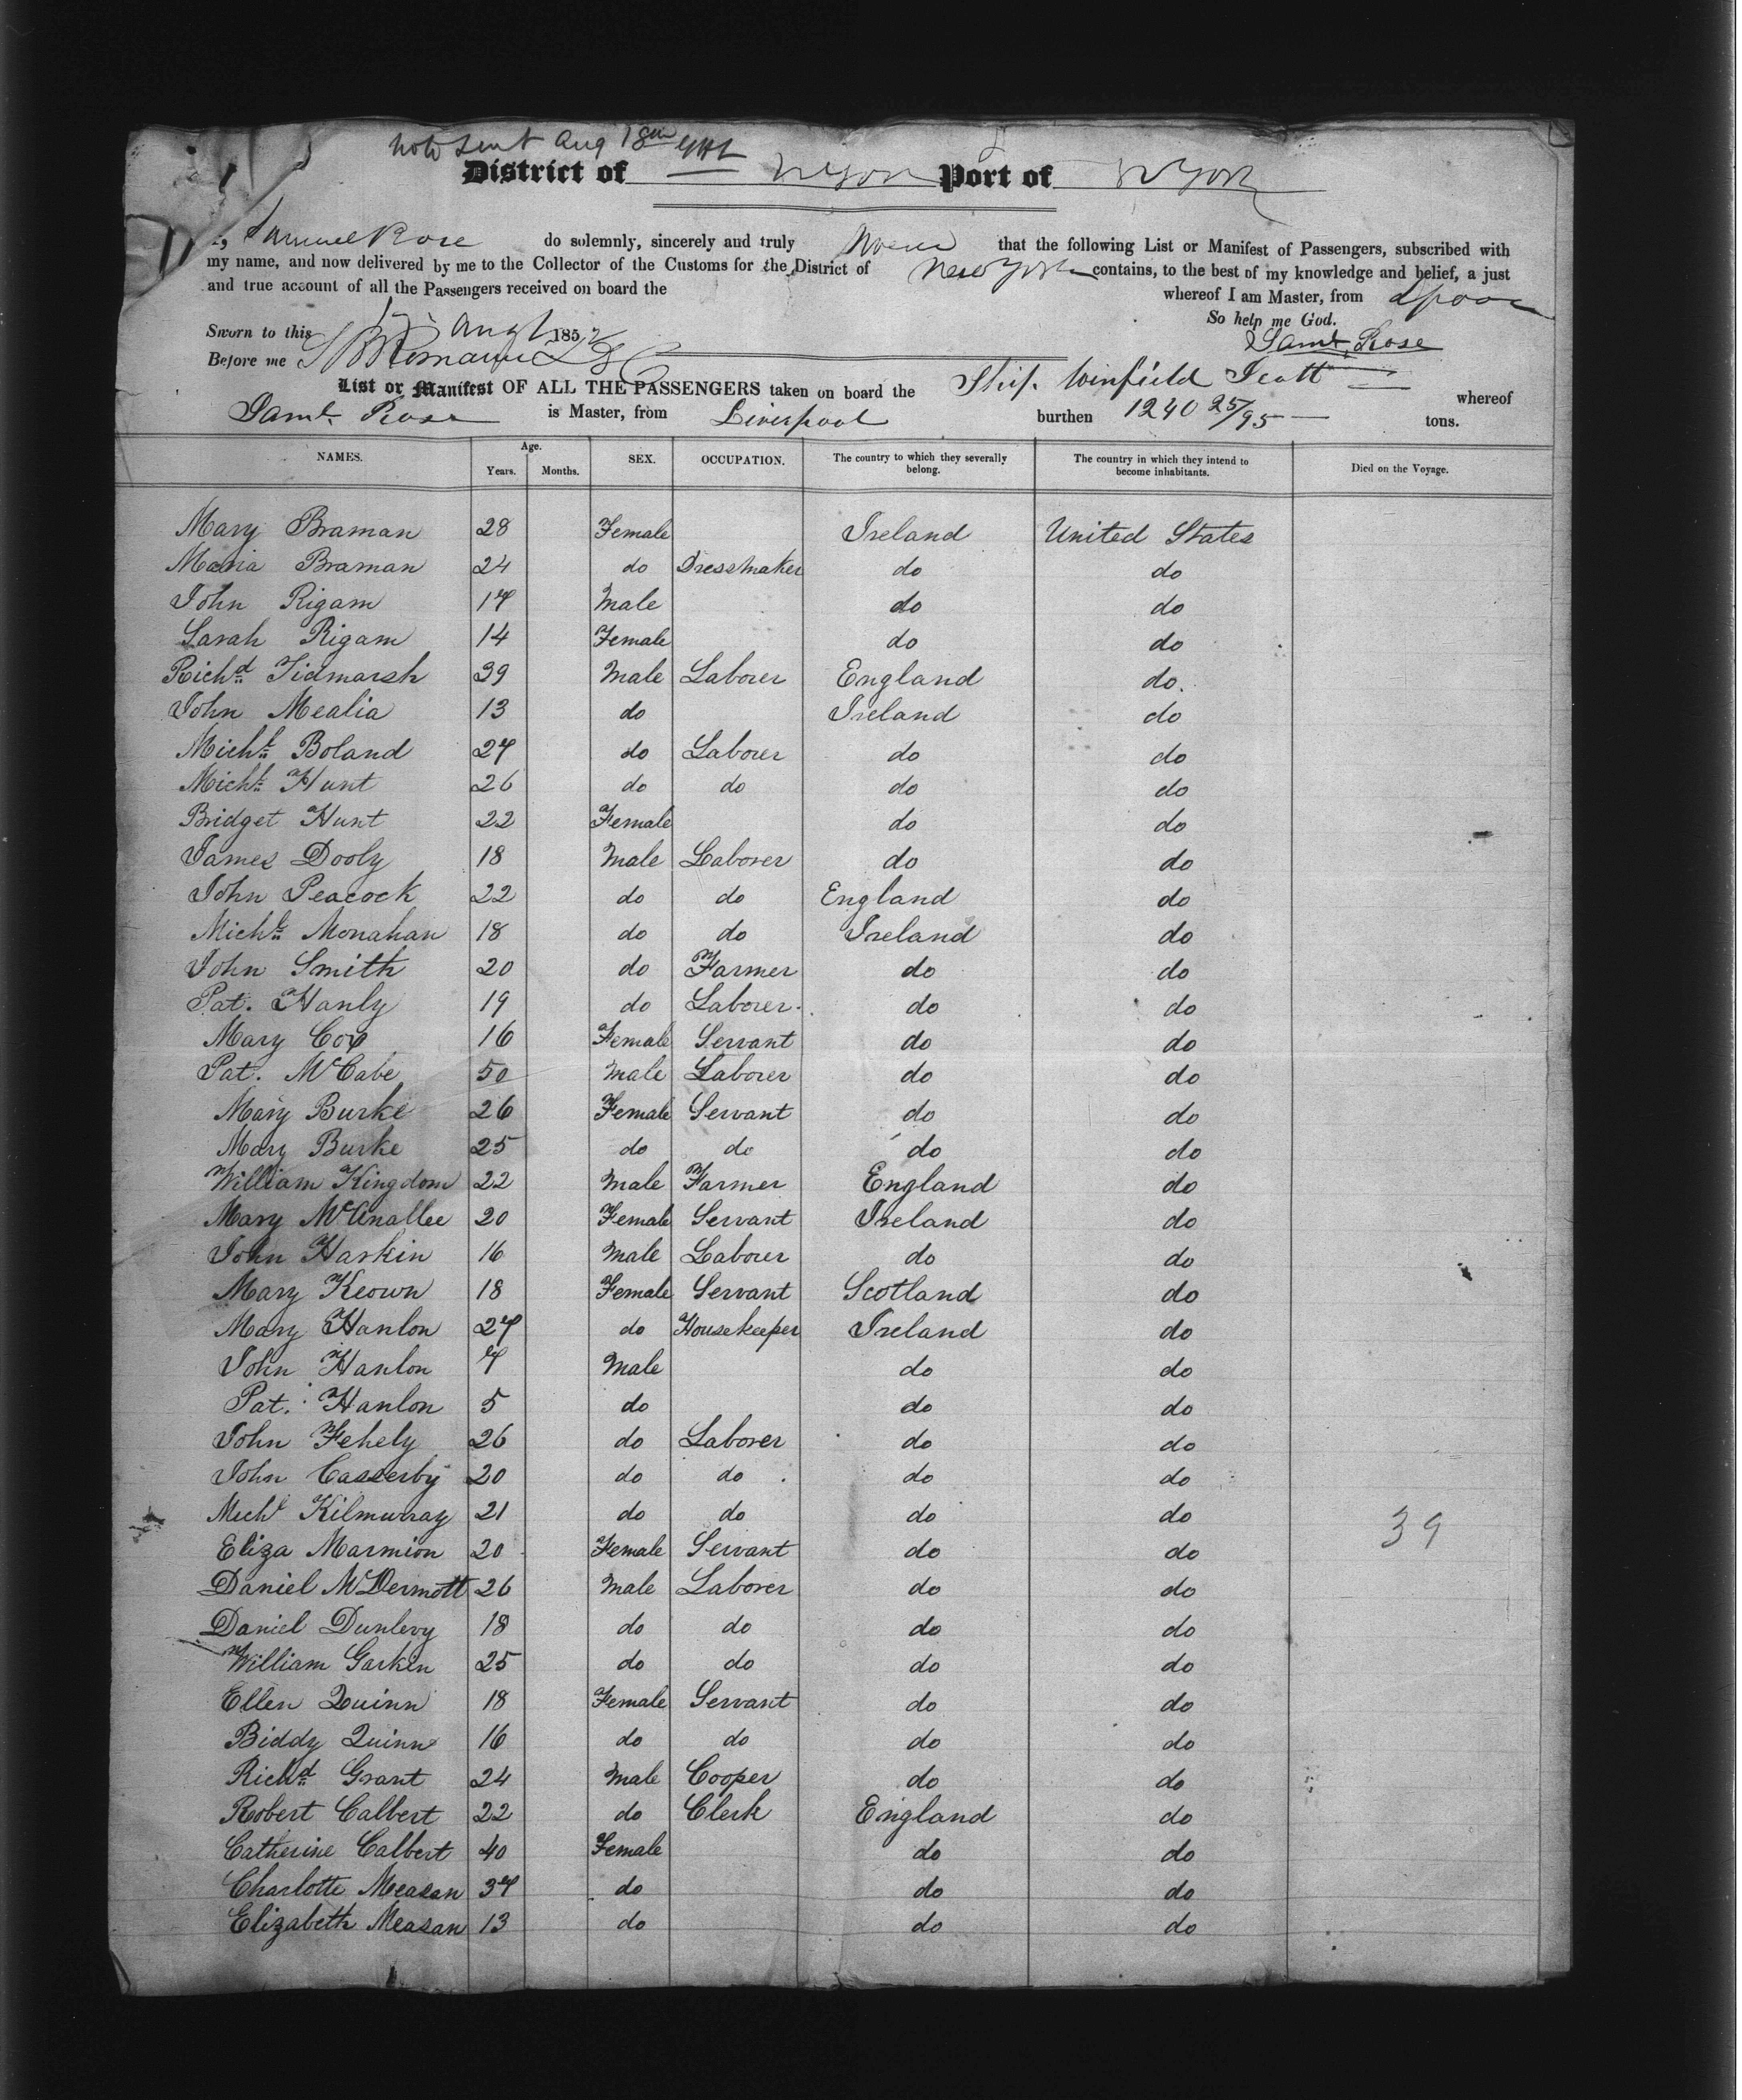 Note sent Aug 18th
District of N York Port of N York
I, Samuel Rose do solemnly, sincerely and truly swear that the following List or Manifest of Passengers, subscribed with
my name, and now delivered by me to the Collector of the Customs for the District of New York contains, to the best of my knowledge and belief, a just
and true account of all the Passengers received on board the whereof I am Master, from Lpool
So help me God.
Sworn to this Augt 1852
Saml. Rose
Before me
List or Manifest OF ALL THE PASSENGERS taken on board the Ship. Winfield Scott whereof
Saml. Rose is Master, from Liverpool burthen 1240 25/95 tons.
NAMES. Age. Years. Months. SEX. OCCUPATION. The country to which they severally belong. The country in which they intend to become inhabitants. Died on the Voyage.
Mary Braman 28 Female Ireland United States
Maria Braman 24 do Dressmaker do do
John Rigam 17 Male do do
Sarah Rigam 14 Female do do
Richd Tidmarsh 39 Male Laborer England do.
John Mealia 13 do Ireland do
Michl Boland 27 do Laborer do do
Michl Hunt 26 do do do do
Bridget Hunt 22 Female do do
James Dooly 18 Male Laborer do do
John Peacock 22 do do England do
Michl Monahan 18 do do Ireland do
John Smith 20 do Farmer do do
Pat. Hanly 19 do Laborer do do
Mary Cox 16 Female Servant do do
Pat. McCabe 50 Male Laborer do do
Mary Burke 26 Female Servant do do
Mary Burke 25 do do do do
William Kingdom 22 Male Farmer England do
Mary McAnallee 20 Female Servant Ireland do
John Harkin 16 Male Laborer do do
Mary Keown 18 Female Servant Scotland do
Mary Hanlon 27 do Housekeeper Ireland do
John Hanlon 7 Male do do
Pat. Hanlon 5 do do do
John Fehely 26 do Laborer do do
John Casserby 20 do do do do
Michl Kilmurray 21 do do do do 39
Eliza Marmion 20 Female Servant do do
Daniel McDermott 26 Male Laborer do do
Daniel Dunlevy 18 do do do do
William Garken 25 do do do do
Ellen Quinn 18 Female Servant do do
Biddy Quinn 16 do do do do
Richd Grant 24 Male Cooper do do
Robert Calbert 22 do Clerk England do
Catherine Calbert 40 Female do do
Charlotte Measan 37 do do do
Elizabeth Measan 13 do do do